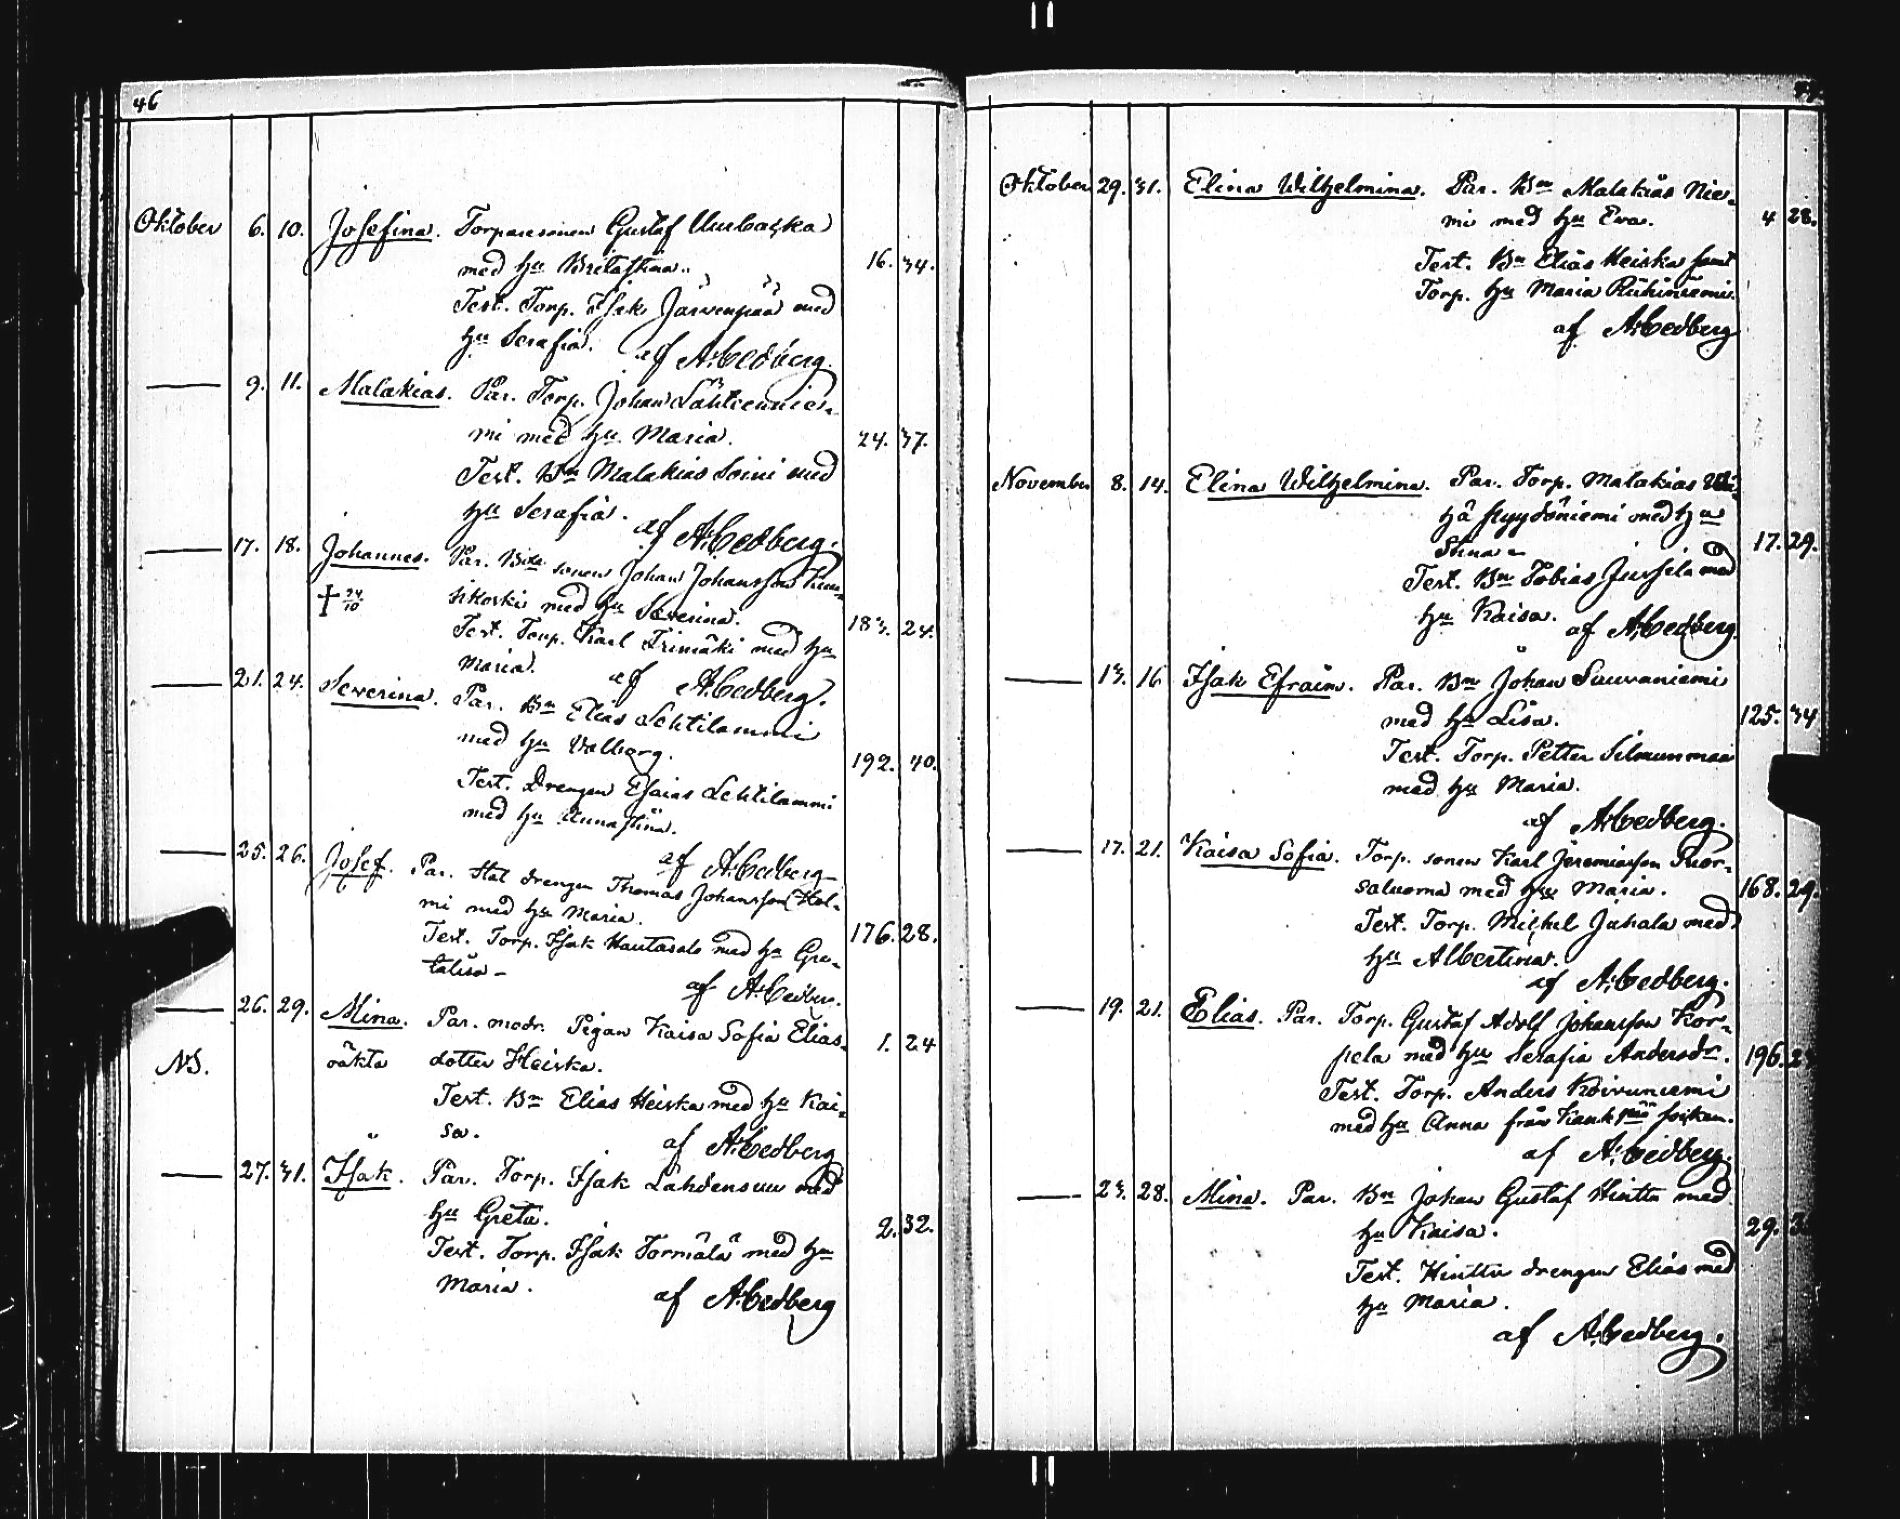 46
Oktober 6. 10. Josefina. Torparesonen Gustaf
med hu Britastina. 16. 34.
Test. Torp. Isak Järvenpää med
hu Serafia.
af A. Cedberg.
9. 11. Malakias. Par. Torp. Johan Lähteennie-
mi med hu Maria. 24. 37.
Test. Bn Malakias Soini med
hu Serafia.
af A. Cedberg.
17. 18. Johannes. Par. Bde sonen Johan Johansson
† 24/10 med hu Severina. 183. 24.
Test. Torp. Karl Trimäki med hu
Maria.
af A. Cedberg.
21. 24. Severina. Par. Bn Elias Lehtilammi
med hu Valborg. 192. 40.
Test. Drengen Esaias Lehtilammi
med hu Annastina.
af A. Cedberg
25. 26. Josef. Par. drengen Thomas Johansson Hol-
mi med hu Maria. 176. 28.
Test. Torp. Isak Hautasalo med hu Gre-
talisa
af A. Cedberg.
26. 29. Mina. Par. modr. Pigan Kaisa Sofia Elias- 1. 24
NB. oäkta dotter Heiska.
Test. Bn Elias Heiska med hu Kai-
sa.
af A. Cedberg
27. 31. Isak. Par. Torp. Isak Lahdensuu med
hu Greta. 2. 32.
Test. Torp. Isak Tormälä med hu
Maria.
af A. Cedberg
Oktober 29. 31. Elina Wilhelmina. Par. Bn Malakias Nie-
mi med hu Eva. 4 28.
Test. Bn Elias Heiska samt
Torp. hu Maria Riihiniemi.
af A. Cedberg
November 8. 14. Elina Wilhelmina. Par. Torp. Malakias
med hu
Stina 17. 29.
Test. Bn Tobias Jussila med
hu Kaisa.
af A. Cedberg.
13. 16 Isak Efraim. Par. Bn Johan Sauvaniemi
med hu Lisa. 125. 34
Test. Torp. Petter Silmunmaa
med hu Maria.
af A. Cedberg.
17. 21. Kaisa Sofia. Torp. sonen Karl Jeremiasson
med hu Maria. 168. 29.
Test. Torp. Michel Juhala med
hu Albertina.
af A. Cedberg.
19. 21. Elias. Par. Torp. Gustaf Adolf Johansson Kor-
pela med hu Serafia Andersdr. 196.
Test. Torp. Anders Koivuniemi
med hu Anna från
af A. Cedberg.
23. 28. Mina. Par. Bn Johan Gustaf Hinttu med
hu Kaisa. 29.
Test. Hinttu drengen Elias med
hu Maria.
af A. Cedberg.